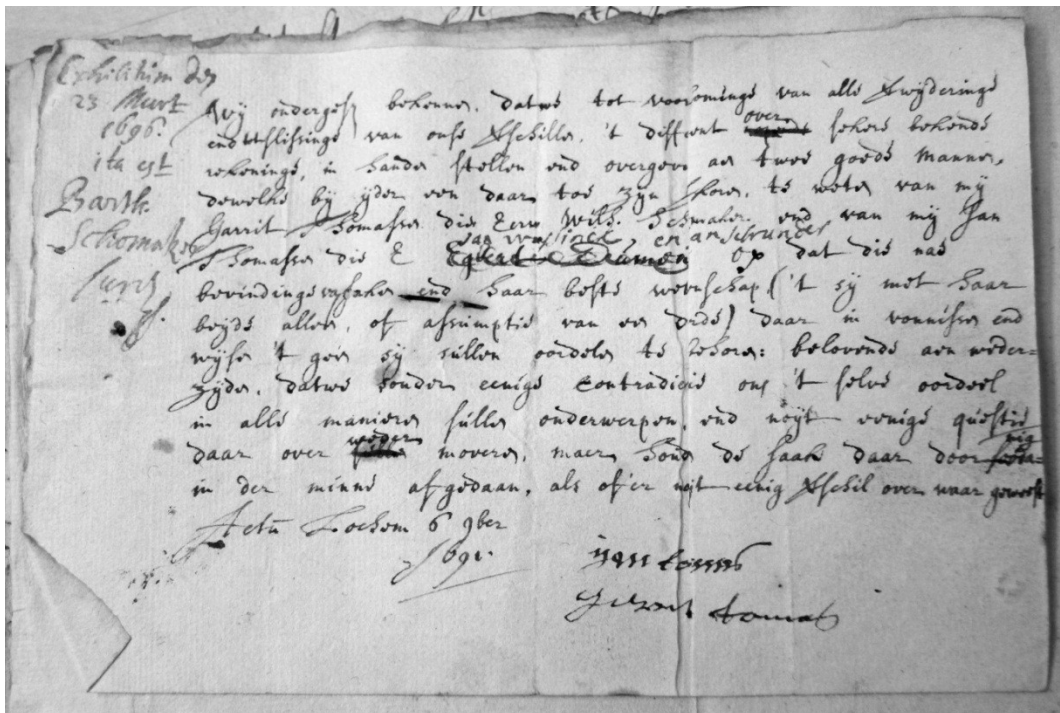 Exhibitum den
23 Meert
1696.
ita est
Bartk
Schomaker
Wy ondergesz bekennen, datwe tot voorkominge van alle
end van onse 't different over sekere bekende
rekeninge, in handen stellen end overgeven aen twee goede mannen,
dewelke by yder een daar toe zyn te weten van my
Garrit Thomassen die Eerw Wilh. Schmaker end van my Jan
Thomassen die E Jan en op dat die nae
bevindinge van saken end haar beste wetenschap ('t sy met haar
beyde allen, of assumptie van een derde) daar in vonnissen end
wysen 't geen sy sullen oordelen te behoren: belovende aen weder-
zyden, datwe sonder eenige contradictie ons 't selve oordeel
in alle manieren sullen onderwerpen, end noyt eenige questie
daar over weder moveren, maer de saak daar door
in der minne afgedaan, als of'er noyt eenig over waar geweest
Actu Lochem 6 9ber
1691.
Jan tomas
Gerrit tomas